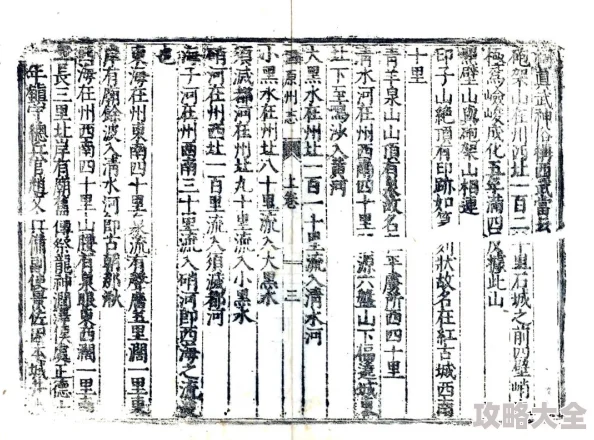 真武神俗稱西武當云
砲架山在州西北一百二十里石城之前四壁峭
極為險峻成化五年滿四反據此山
黑壁山與砲架山相連
印子山絶頂有印跡如笋
列狀故名在紅古城西南
十里
青羊泉山山頂有泉故名
平虜所西四十里
清水河在州西南四十里
源六盤山下偪遶城
北下至鳴沙入黃河
大黑水在州北一百一十里流入清水河
固原州志 上卷 三
小黑水在州北八十里流入大黑水
須滅都河在州北九十里流入小黑水
硝河在州西北一百里流入須滅都河
海子河在州西南三十里流入硝河即西海之流
也
東海在州東南四十里泉流有聲廣五里濶一里東
岸有廟餘波入清水河即古朝那湫
西海在州西南四十里山腰有泉眼東西濶一里南
長三里北岸有廟舊傳祭龍神
正德
年鎮守總兵官趙文
兵備副使景佐